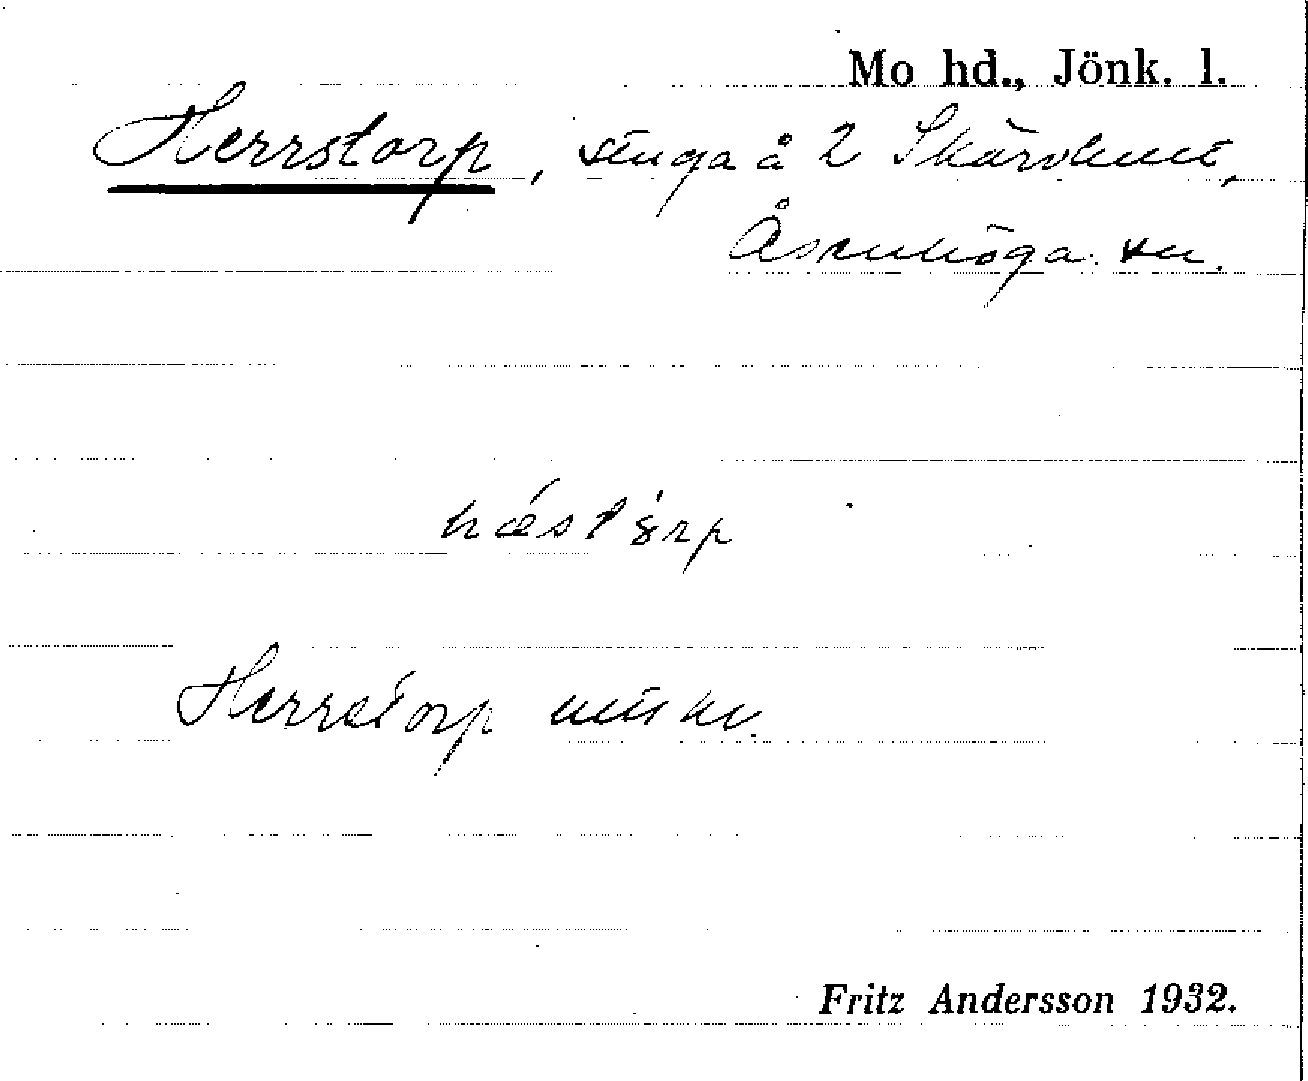 Mo hd., Jönk. l.
Herrstorp, stuga å 2 Skärvhult,
Åsenhöga sn.
hǽstórp
Herrstorp utt kv.
Fritz Andersson 1932.